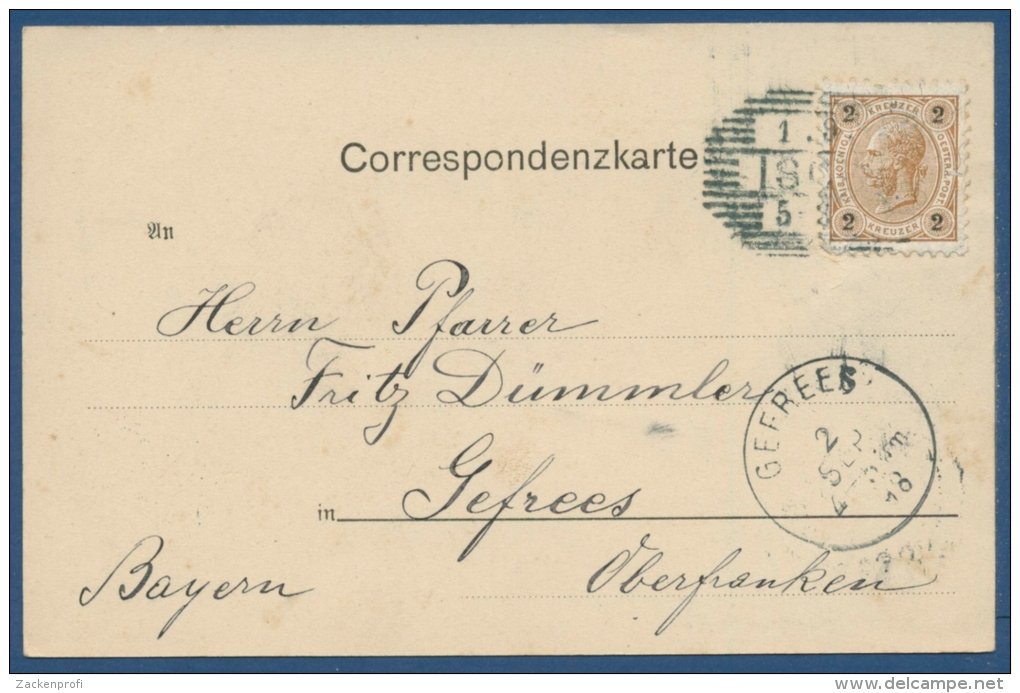 2 KREUZER 2
KAIS. KOENIGL. OESTERR. POST.
2 KREUZER 2
1
5
Correspondenzkarte
An
Herrn Pfarrer
Fritz Dümmler
GEFREES
2
SEP
in Gefrees
Bayern Oberfranken
Zackenprofi
delcampe.net